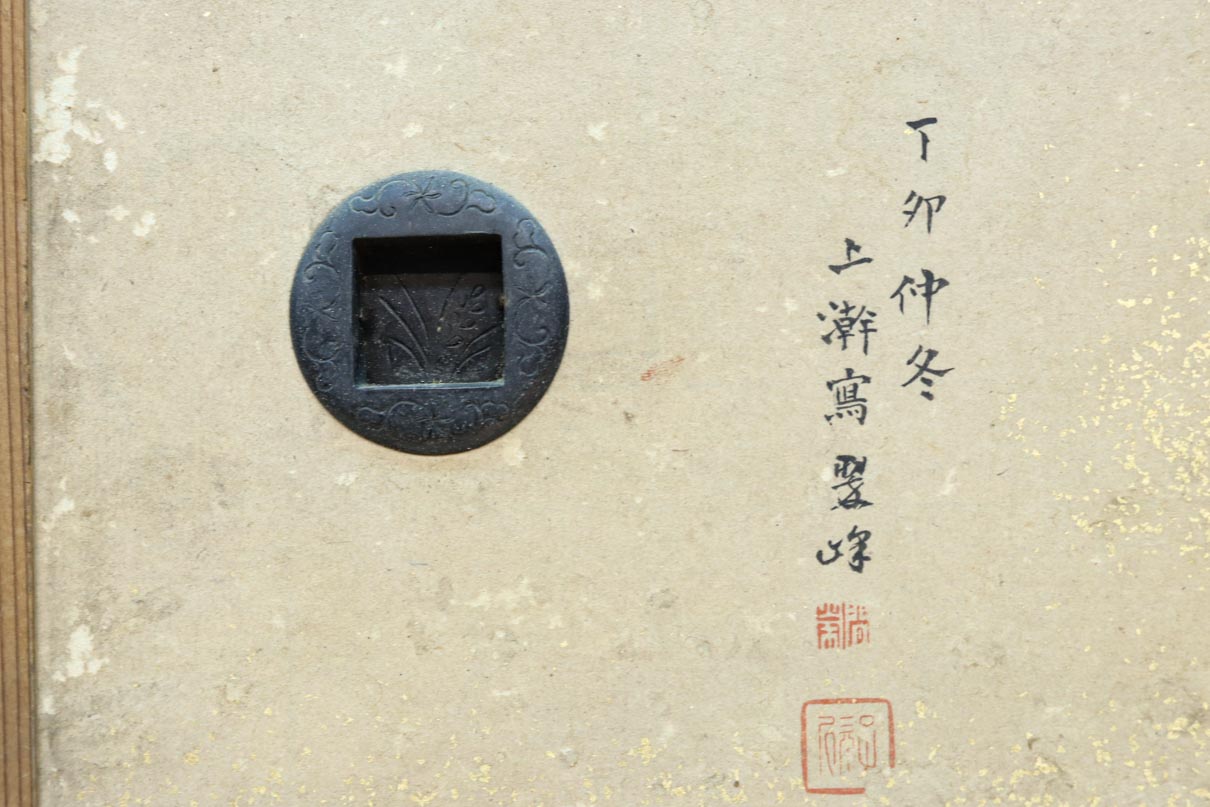 丁卯仲冬
上澣寫翠峰